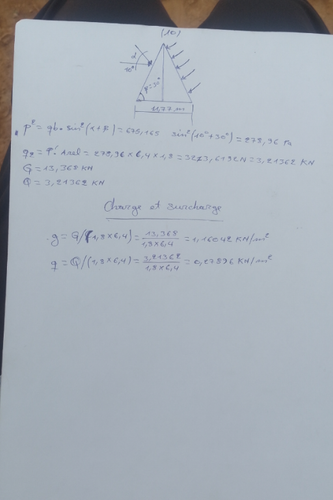 (10)
α
10°
β=30°
11,77 m
P" = qh · sin²(1+β) = 675,165 sin²(10°+30°) = 279,36 Pa
q₂ = P · Axel = 279,36 × 6,4 × 1,8 = N = 3,21362 KN
G = 13,368 KN
Q = 3,21362 KN
Charge et surcharge
g = G/(1,8×6,4) = 13,368 / 1,8×6,4 = 1,16042 KN/m²
q = Q/(1,8×6,4) = 3,21362 / 1,8×6,4 = 0,27896 KN/m²